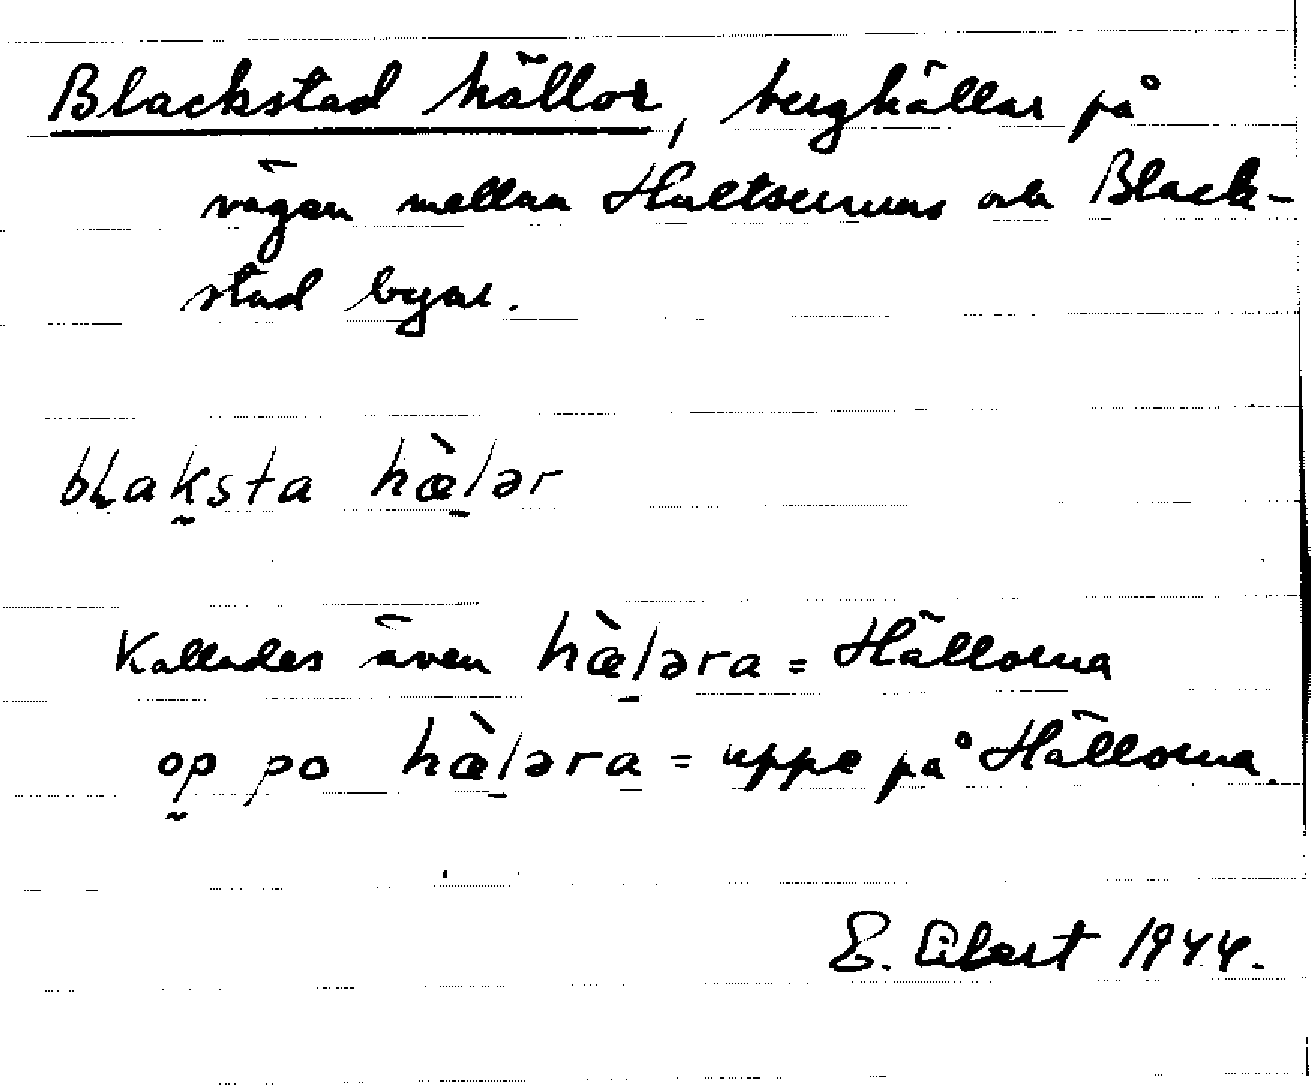 Blackstad hällor, berghällar på
vägen mellan Hultserums och Black-
stad byar.
bʟak̰sta hæ̠̀lər
Kallades även hæ̠̀ləra = Hällorna
op̰ po hæ̠̀ləra = uppe på Hällorna.
E. Ebert 1944.